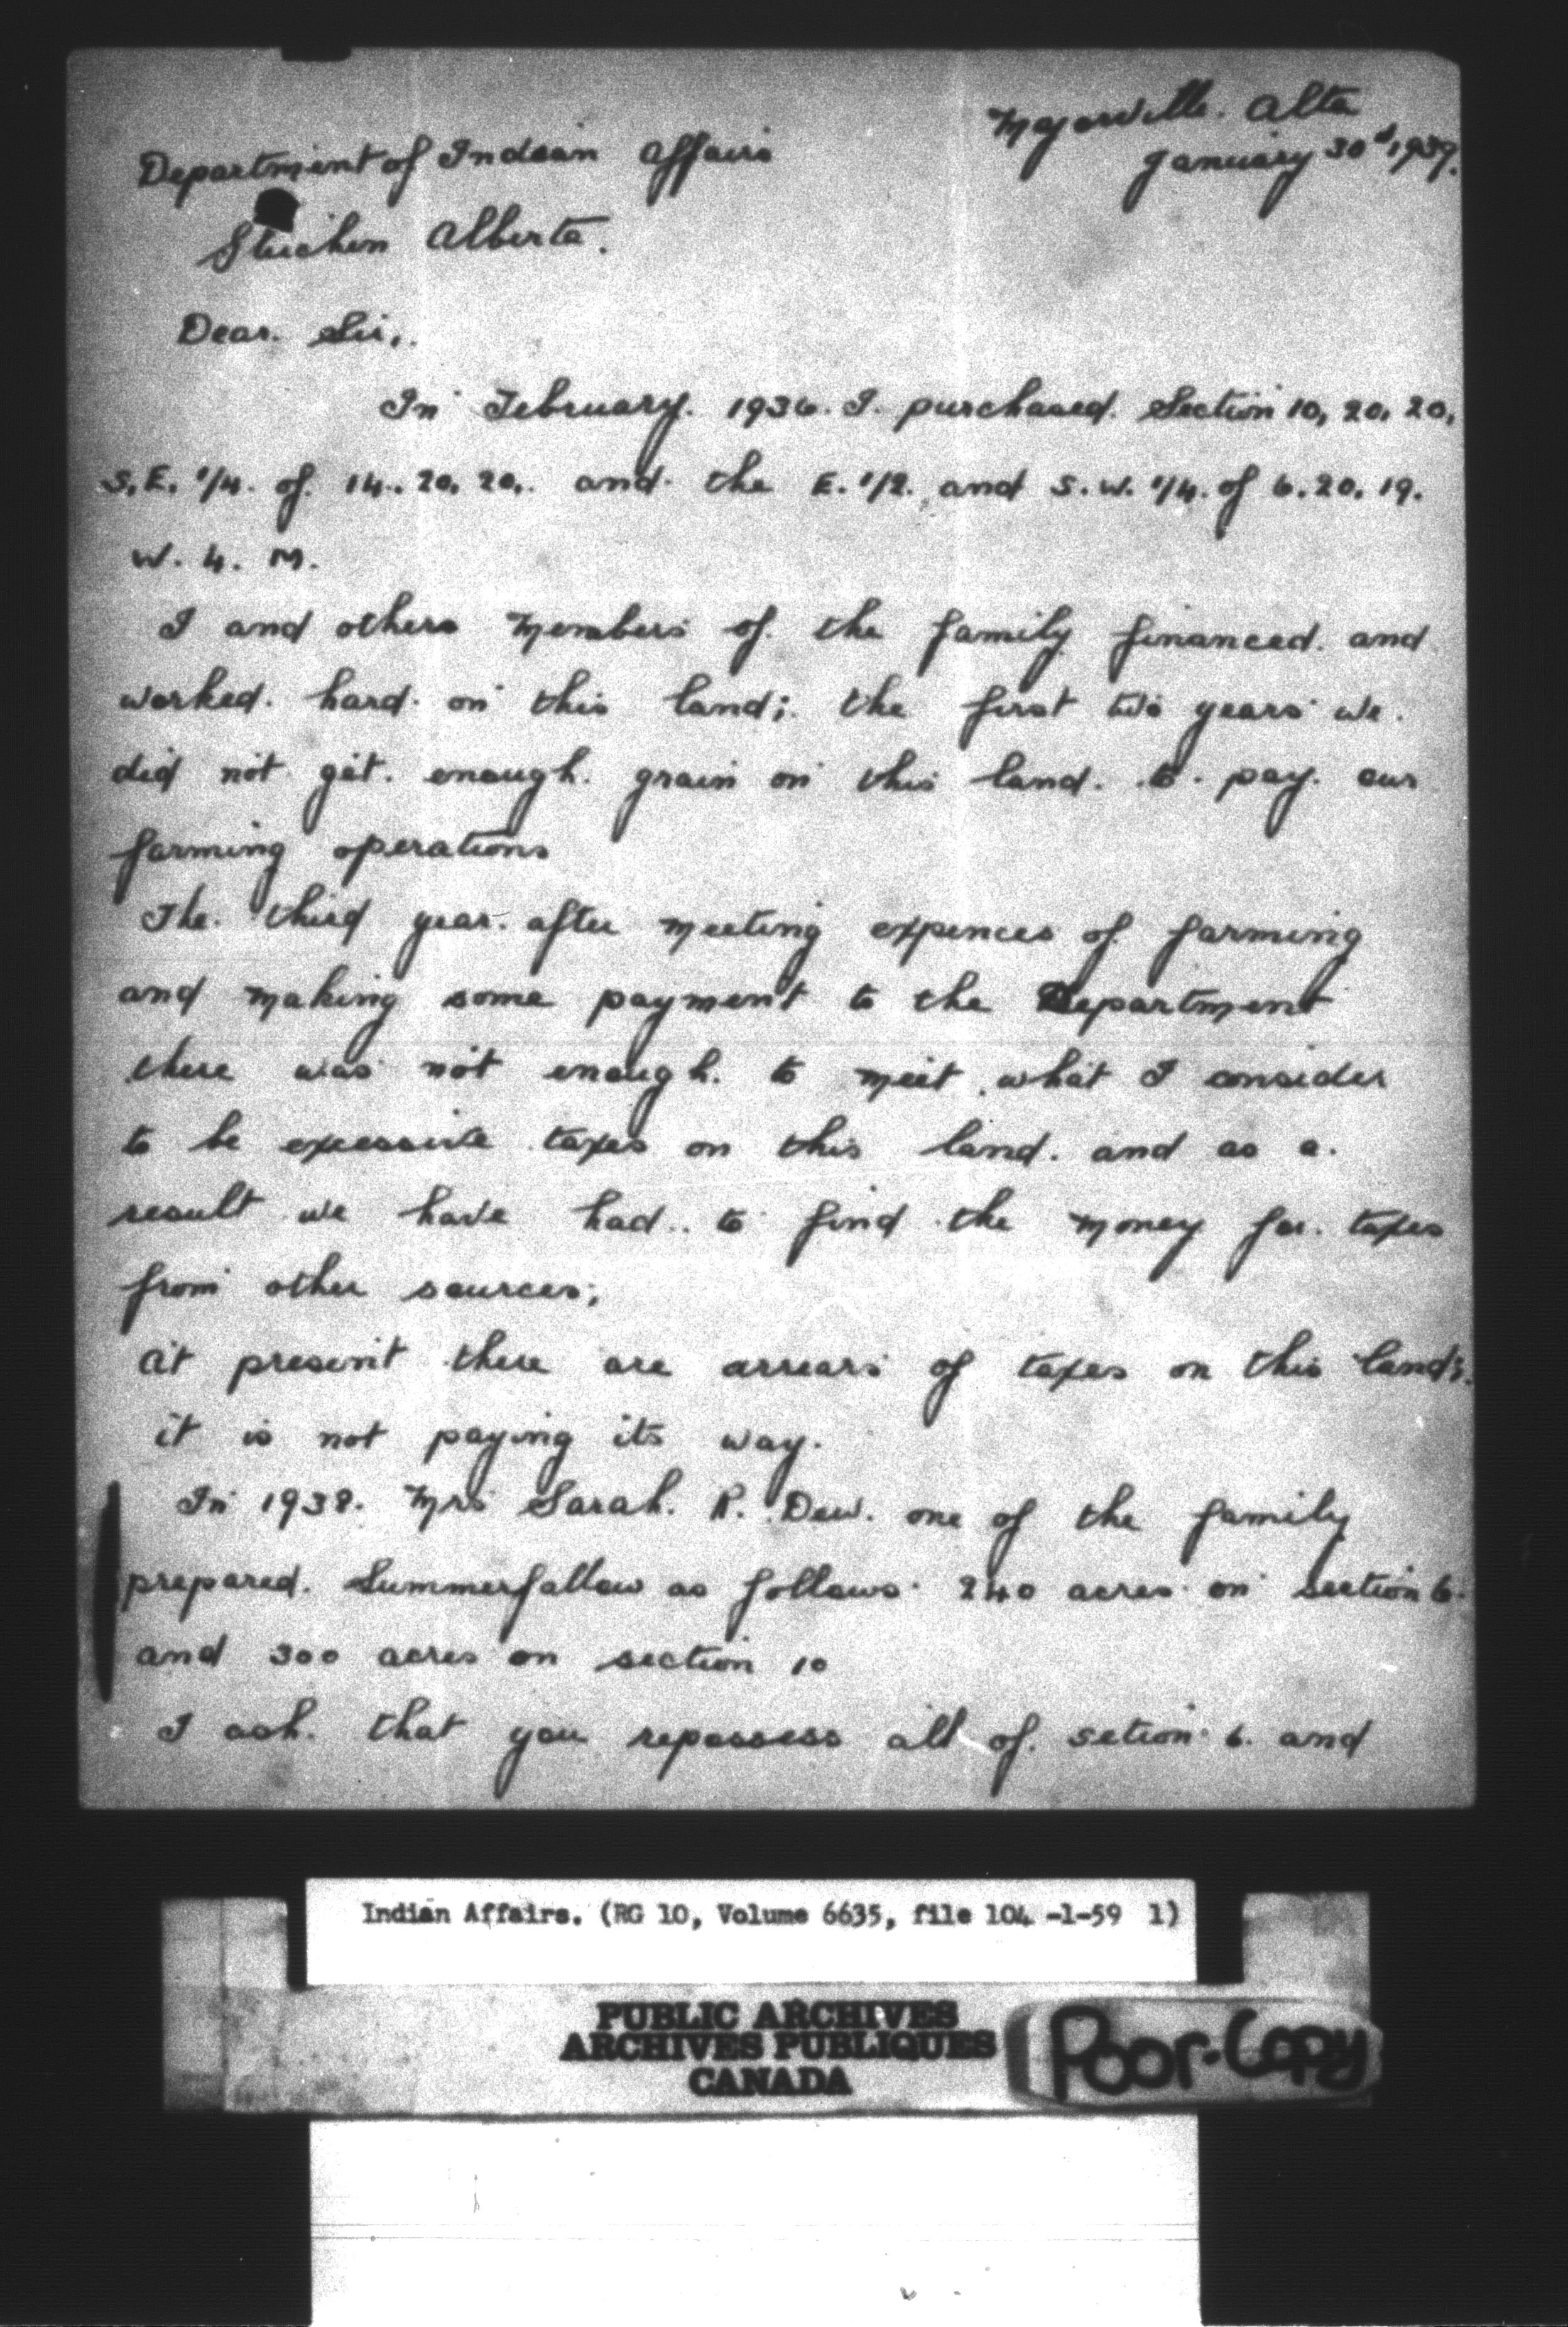 Majorville. Alta
January 30th 1939.
Department of Indian Affairs
Gleichen Alberta.
Dear. Sir,.
In February. 1936. I. purchased. Section 10, 20. 20,
S.E. 1/4. of. 14.. 20. 20,. and. the E. 1/2. and S.W. 1/4. of 6. 20. 19.
W. 4. M.
I and others members of. the family financed. and
worked. hard. on this land; the first two years we.
did not get. enough. grain on this land. to. pay. our
farming operations
The. third year. after meeting expences of. farming
and making some payment to the Department
there was not enough. to meet what I consider
to be excessive taxes on this land. and as a.
result we have had.. to find the money for. taxes
from other sources;
At present there are arrears of taxes on this land;.
it is not paying its way.
In 1938. Mrs Sarah. R. Dew. one of the family
prepared. Summerfallow as follows. 240 acres on section 6.
and 300 acres on section 10
I ask. that you repossess all of. setion. 6. and
Indian Affairs. (RG 10, Volume 6635, file 104 -1-59 1)
PUBLIC ARCHIVES
ARCHIVES PUBLIQUES
CANADA
Poor-Copy